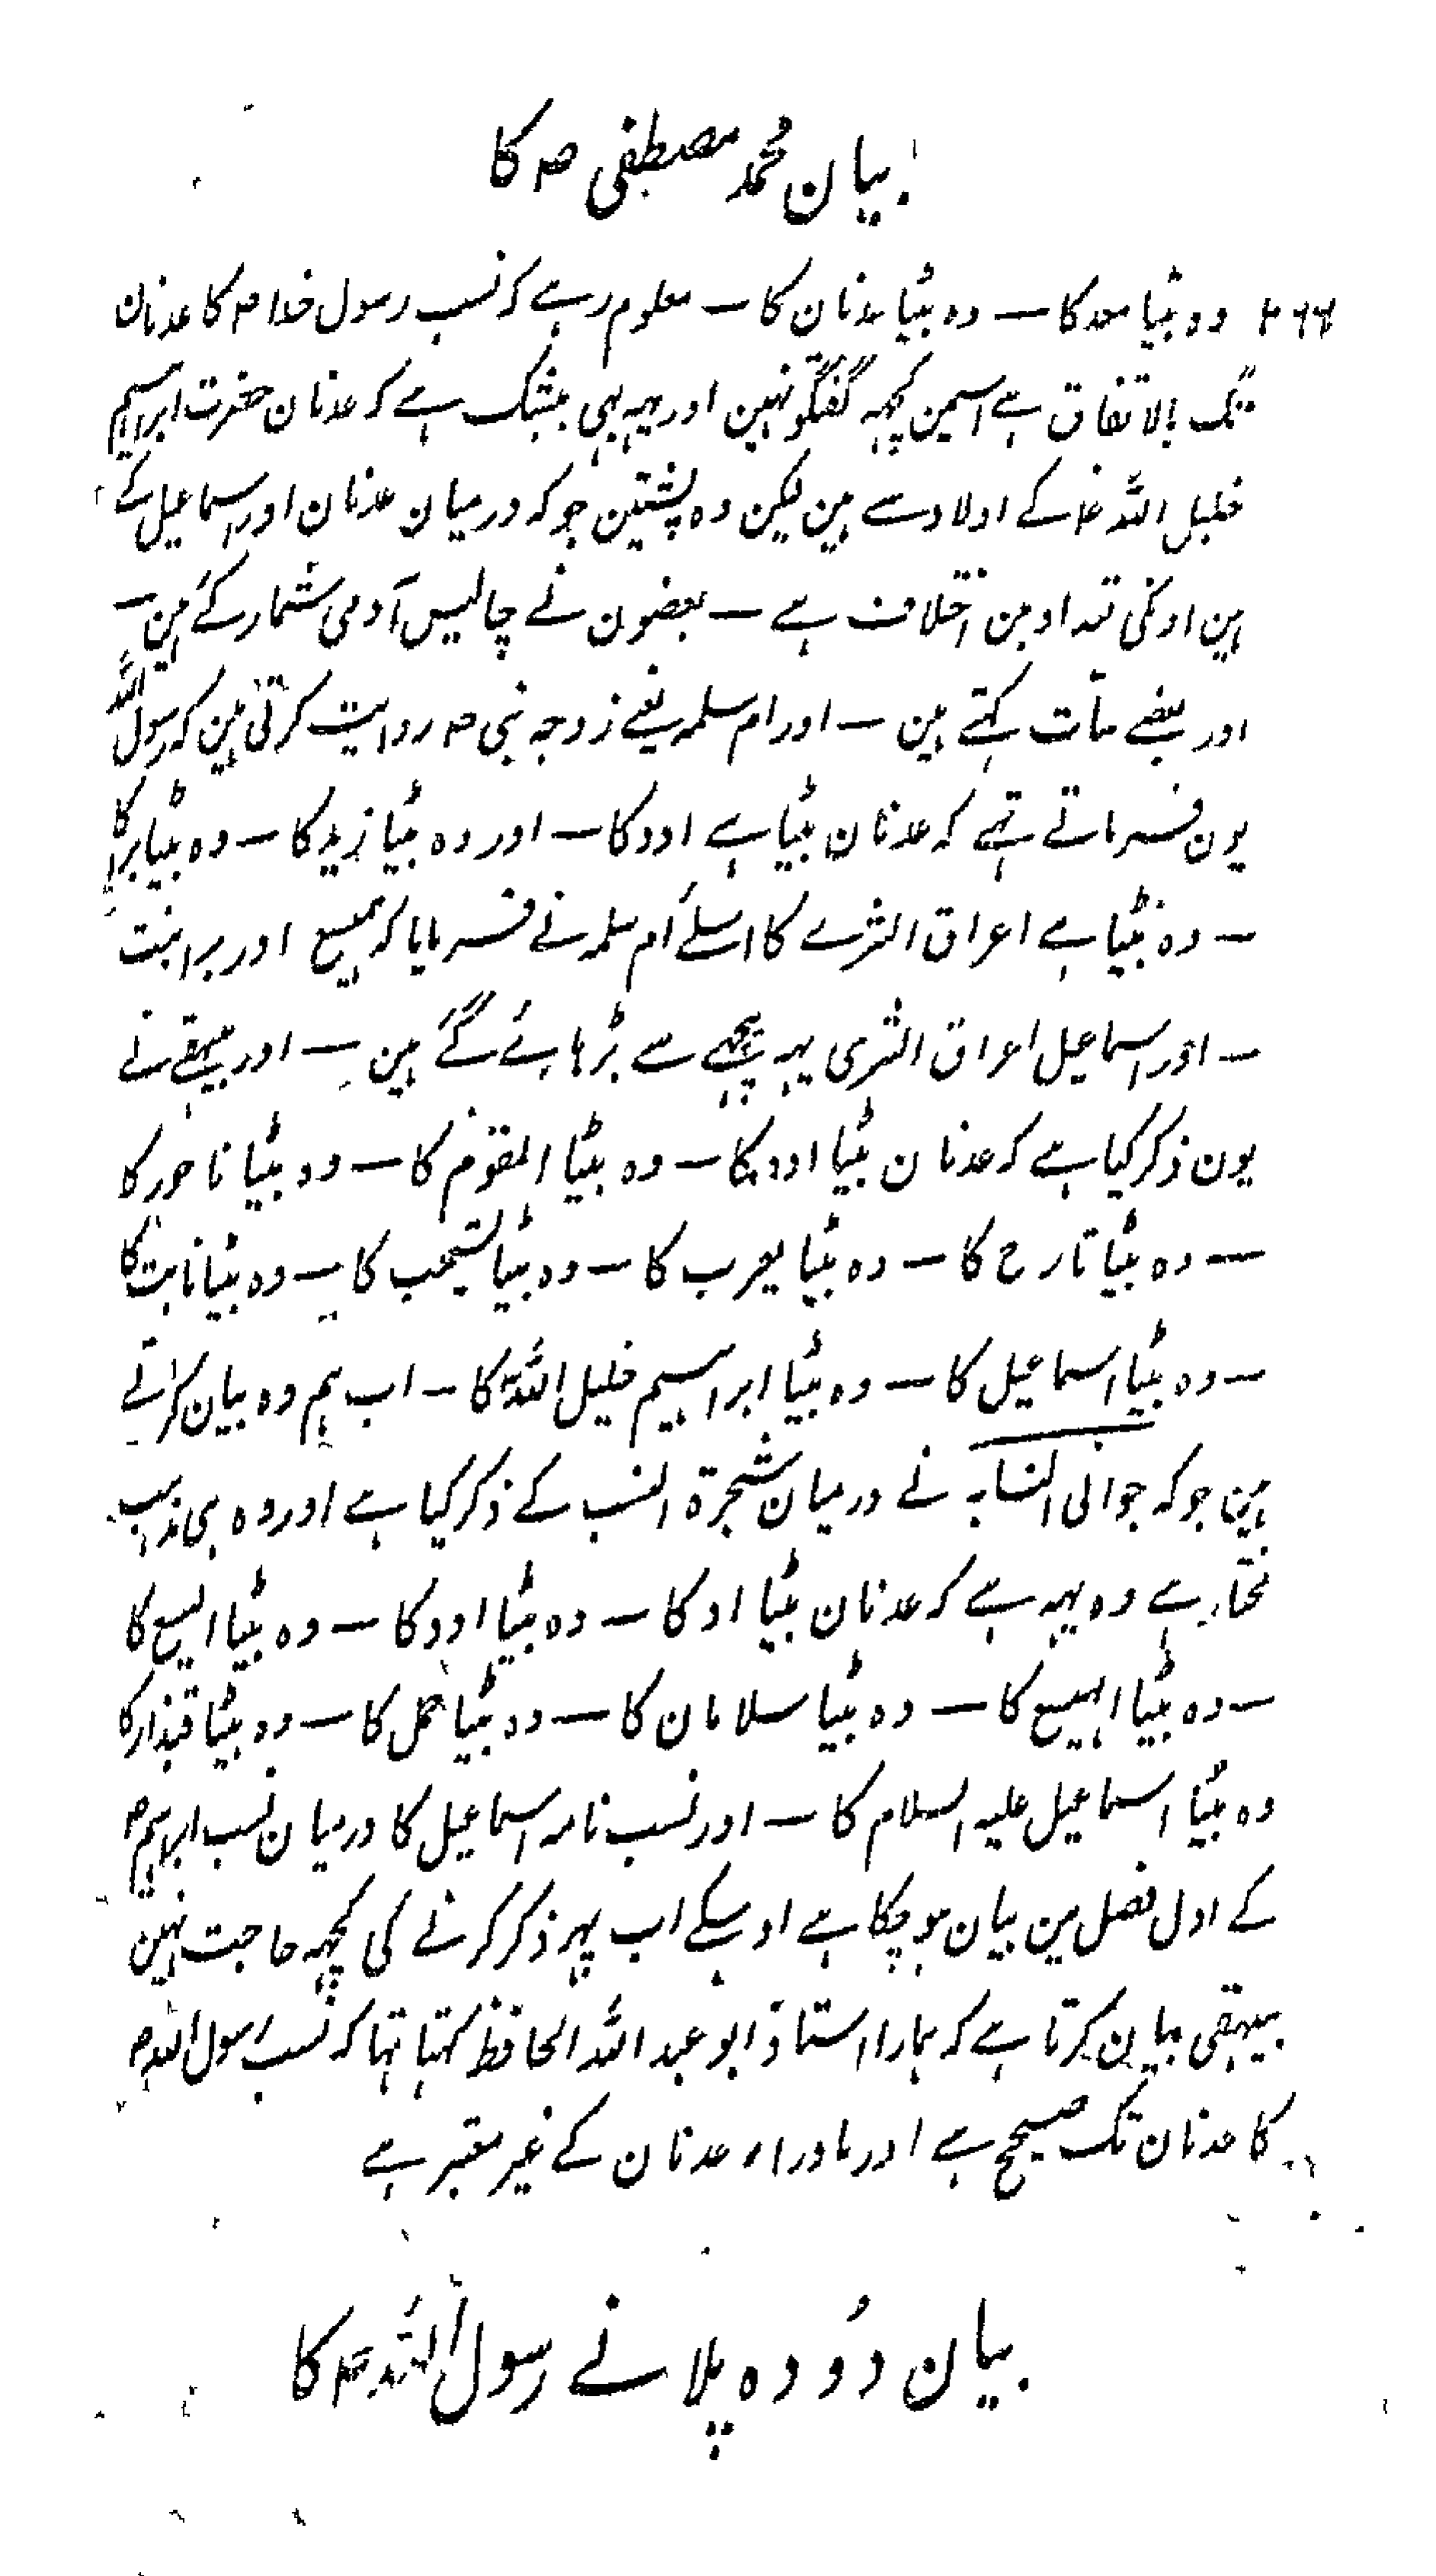 بیان محمد مصطفی ص کا
۲۶۶ وہ بیٹا معد کا — وہ بیٹا عدنان کا — معلوم رہے کہ نسب رسول خدا ص کا عدنان
تک بالاتفاق ہے اسمین کچہہ گفتگو نہین اور یہہ بہی بیشک ہے کہ عدنان حضرت ابراہیم
خلیل اللہ ع کے اولاد سے ہین لیکن وہ پشتین جو کہ درمیان عدنان اور اسماعیل کے
ہین اونکی تعداد مین اختلاف ہے — بعضون نے چالیس آدمی شمار کئے ہین —
اور بعضے سات کہتے ہین — اور ام سلمہ یعنے زوجہ نبی ص روایت کرتی ہین کہ رسول اللہ
یون فرماتے تہے کہ عدنان بیٹا ہے ادد کا — اور وہ بیٹا زید کا — وہ بیٹا برا کا
— وہ بیٹا ہے اعراق الثرے کا اسلئے ام سلمہ نے فرمایا کہ ہمیسع اور برا نبت
— اور اسماعیل اعراق الثری یہہ پیچہے سے بڑہائے گئے ہین — اور بیہقے نے
یون ذکر کیا ہے کہ عدنان بیٹا ادد کا — وہ بیٹا المقوم کا — وہ بیٹا ناحور کا
— وہ بیٹا تارح کا — وہ بیٹا یعرب کا — وہ بیٹا یشجب کا — وہ بیٹا نابت کا
— وہ بیٹا اسماعیل کا — وہ بیٹا ابراہیم خلیل اللہ کا — اب ہم وہ بیان کرتے
ہین جو کہ جوانی النسابہ نے درمیان شجرۃ النسب کے ذکر کیا ہے اور وہ ہی مذہب
مختار ہے وہ یہہ ہے کہ عدنان بیٹا اد کا — وہ بیٹا ادد کا — وہ بیٹا الیسع کا
— وہ بیٹا الہمیسع کا — وہ بیٹا سلامان کا — وہ بیٹا حمل کا — وہ بیٹا قیذار کا
وہ بیٹا اسماعیل علیہ السلام کا — اور نسب نامہ اسماعیل کا درمیان نسب ابراہیم
کے اول فصل مین بیان ہو چکا ہے اوسکے اب پہر ذکر کرنے کی کچہہ حاجت نہین
بیہقی بیان کرتا ہے کہ ہمارا استاذ ابو عبد اللہ الحافظ کہتا تہا کہ نسب رسول اللہ ص
کا عدنان تک صحیح ہے اور ماوراء عدنان کے غیر معتبر ہے
بیان دودہ پلانے رسول اللہ ص کا